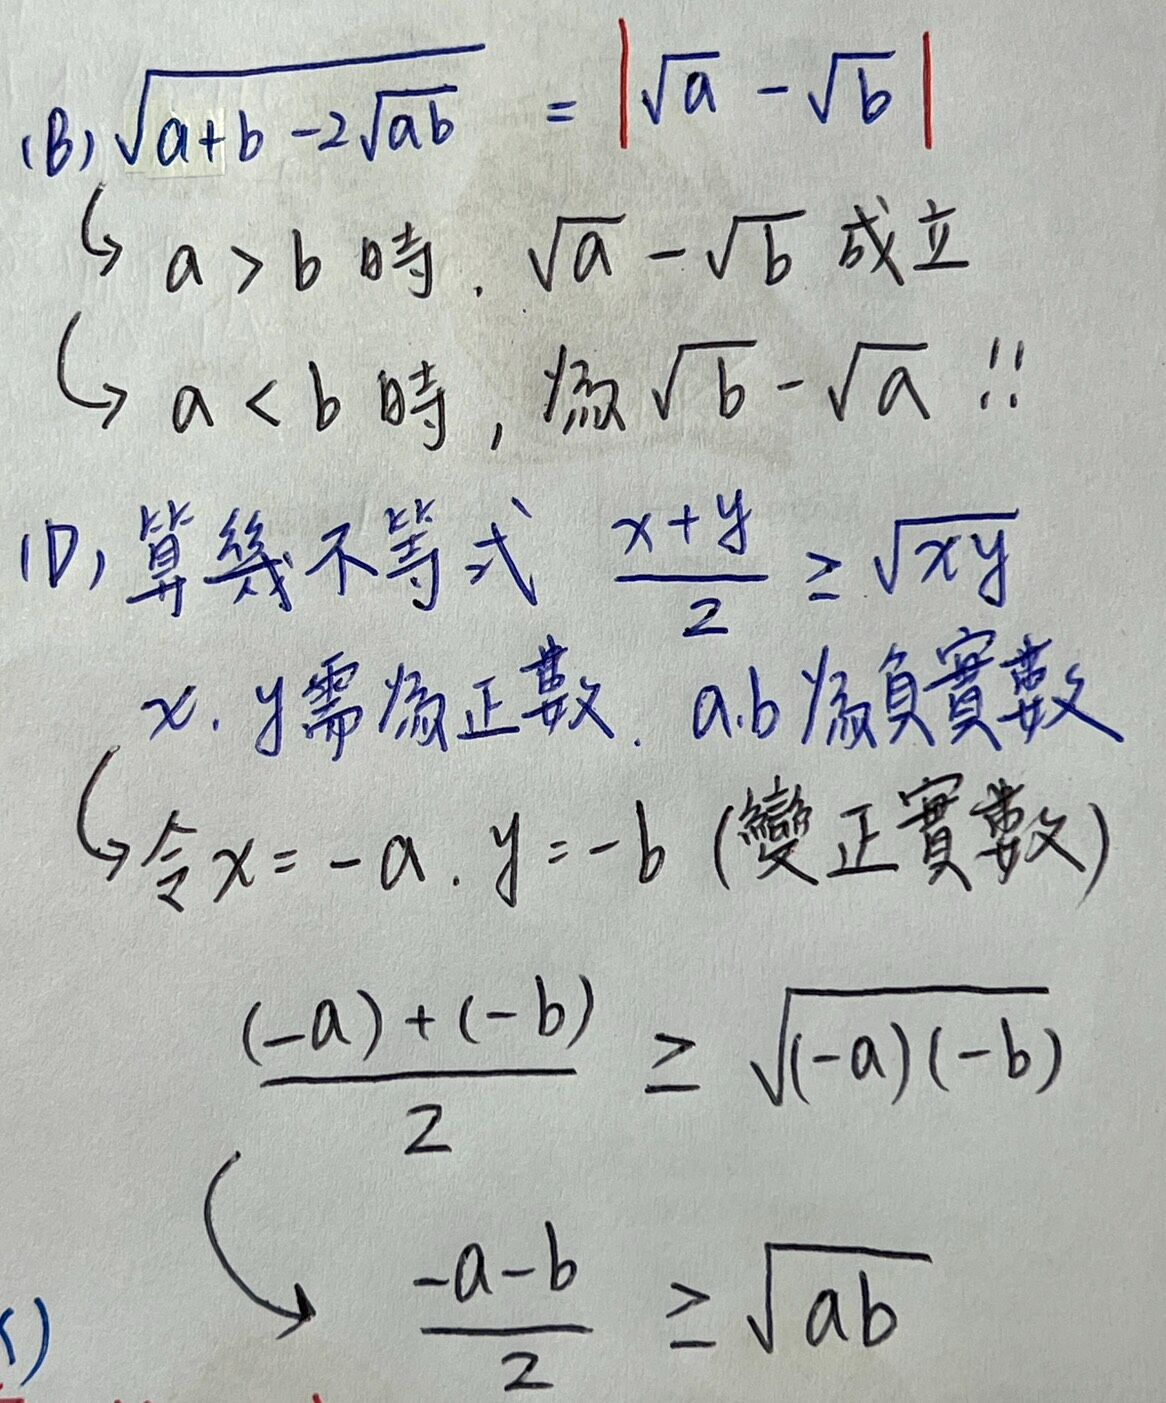 (B) √(a+b-2√(ab)) = |√a - √b|
a > b 時. √a - √b 成立
a < b 時, 為 √b - √a !!
(D) 算幾不等式 (x+y)/2 ≥ √(xy)
x. y需為正數. a.b為負實數
令x = -a. y = -b (變正實數)
((-a)+(-b))/2 ≥ √((-a)(-b))
(-a-b)/2 ≥ √(ab)